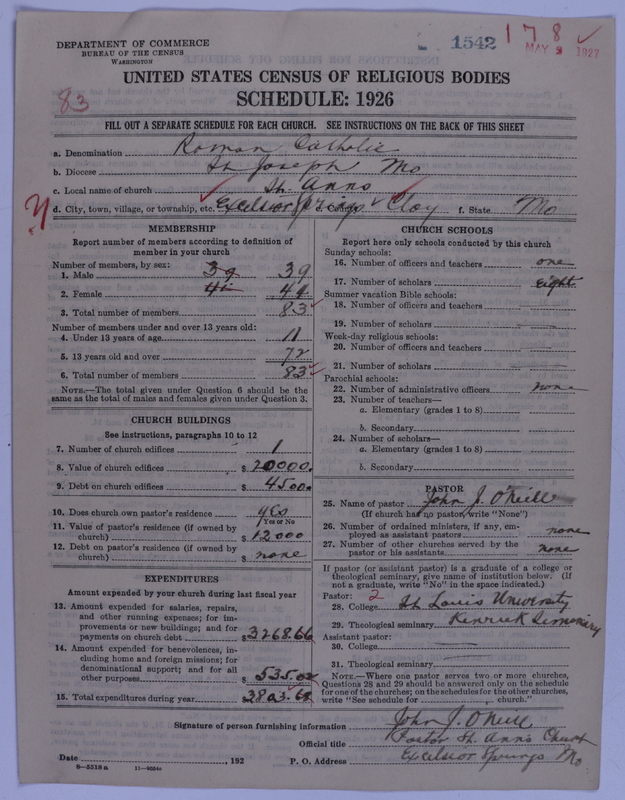 DEPARTMENT OF COMMERCE
BUREAU OF THE CENSUS
WASHINGTON
No. 1542
178 ✓
MAY 9 1927
UNITED STATES CENSUS OF RELIGIOUS BODIES
83
SCHEDULE: 1926
FILL OUT A SEPARATE SCHEDULE FOR EACH CHURCH. SEE INSTRUCTIONS ON THE BACK OF THIS SHEET
a. Denomination Roman Catholic
b. Diocese St Joseph Mo
c. Local name of church St. Anns
d. City, town, village, or township, etc. Excelsior Springs Clay f. State Mo
MEMBERSHIP
Report number of members according to definition of member in your church
Number of members, by sex:
1. Male 39 39
2. Female 44
3. Total number of members 83
Number of members under and over 13 years old:
4. Under 13 years of age 11
5. 13 years old and over 72
6. Total number of members 83
NOTE.—The total given under Question 6 should be the same as the total of males and females given under Question 3.
CHURCH BUILDINGS
See instructions, paragraphs 10 to 12
7. Number of church edifices 1
8. Value of church edifices $ 20000.
9. Debt on church edifices $ 4500.
10. Does church own pastor's residence yes
Yes or No
11. Value of pastor's residence (if owned by church) $ 12000
12. Debt on pastor's residence (if owned by church) $ none
EXPENDITURES
Amount expended by your church during last fiscal year
13. Amount expended for salaries, repairs, and other running expenses; for improvements or new buildings; and for payments on church debt $ 3268.66
14. Amount expended for benevolences, including home and foreign missions; for denominational support; and for all other purposes $ 535.02
15. Total expenditures during year $ 3803.68
CHURCH SCHOOLS
Report here only schools conducted by this church
Sunday schools:
16. Number of officers and teachers one
17. Number of scholars eight
Summer vacation Bible schools:
18. Number of officers and teachers
19. Number of scholars
Week-day religious schools:
20. Number of officers and teachers
21. Number of scholars
Parochial schools:
22. Number of administrative officers none
23. Number of teachers—
a. Elementary (grades 1 to 8)
b. Secondary
24. Number of scholars—
a. Elementary (grades 1 to 8)
b. Secondary
PASTOR
25. Name of pastor John J. O'Neill
(If church has no pastor, write "None")
26. Number of ordained ministers, if any, employed as assistant pastors none
27. Number of other churches served by the pastor or his assistants none
If pastor (or assistant pastor) is a graduate of a college or theological seminary, give name of institution below. (If not a graduate, write "No" in the space indicated.)
Pastor: 2
28. College St Louis University
29. Theological seminary Kenrick Seminary
Assistant pastor:
30. College
31. Theological seminary
NOTE.—Where one pastor serves two or more churches, Questions 28 and 29 should be answered only on the schedule for one of the churches; on the schedules for the other churches, write "See schedule for church."
Signature of person furnishing information John J. O'Neill
Official title Pastor St. Anns Church
Date , 192 P. O. Address Excelsior Springs Mo
8—5518a 11—9054c